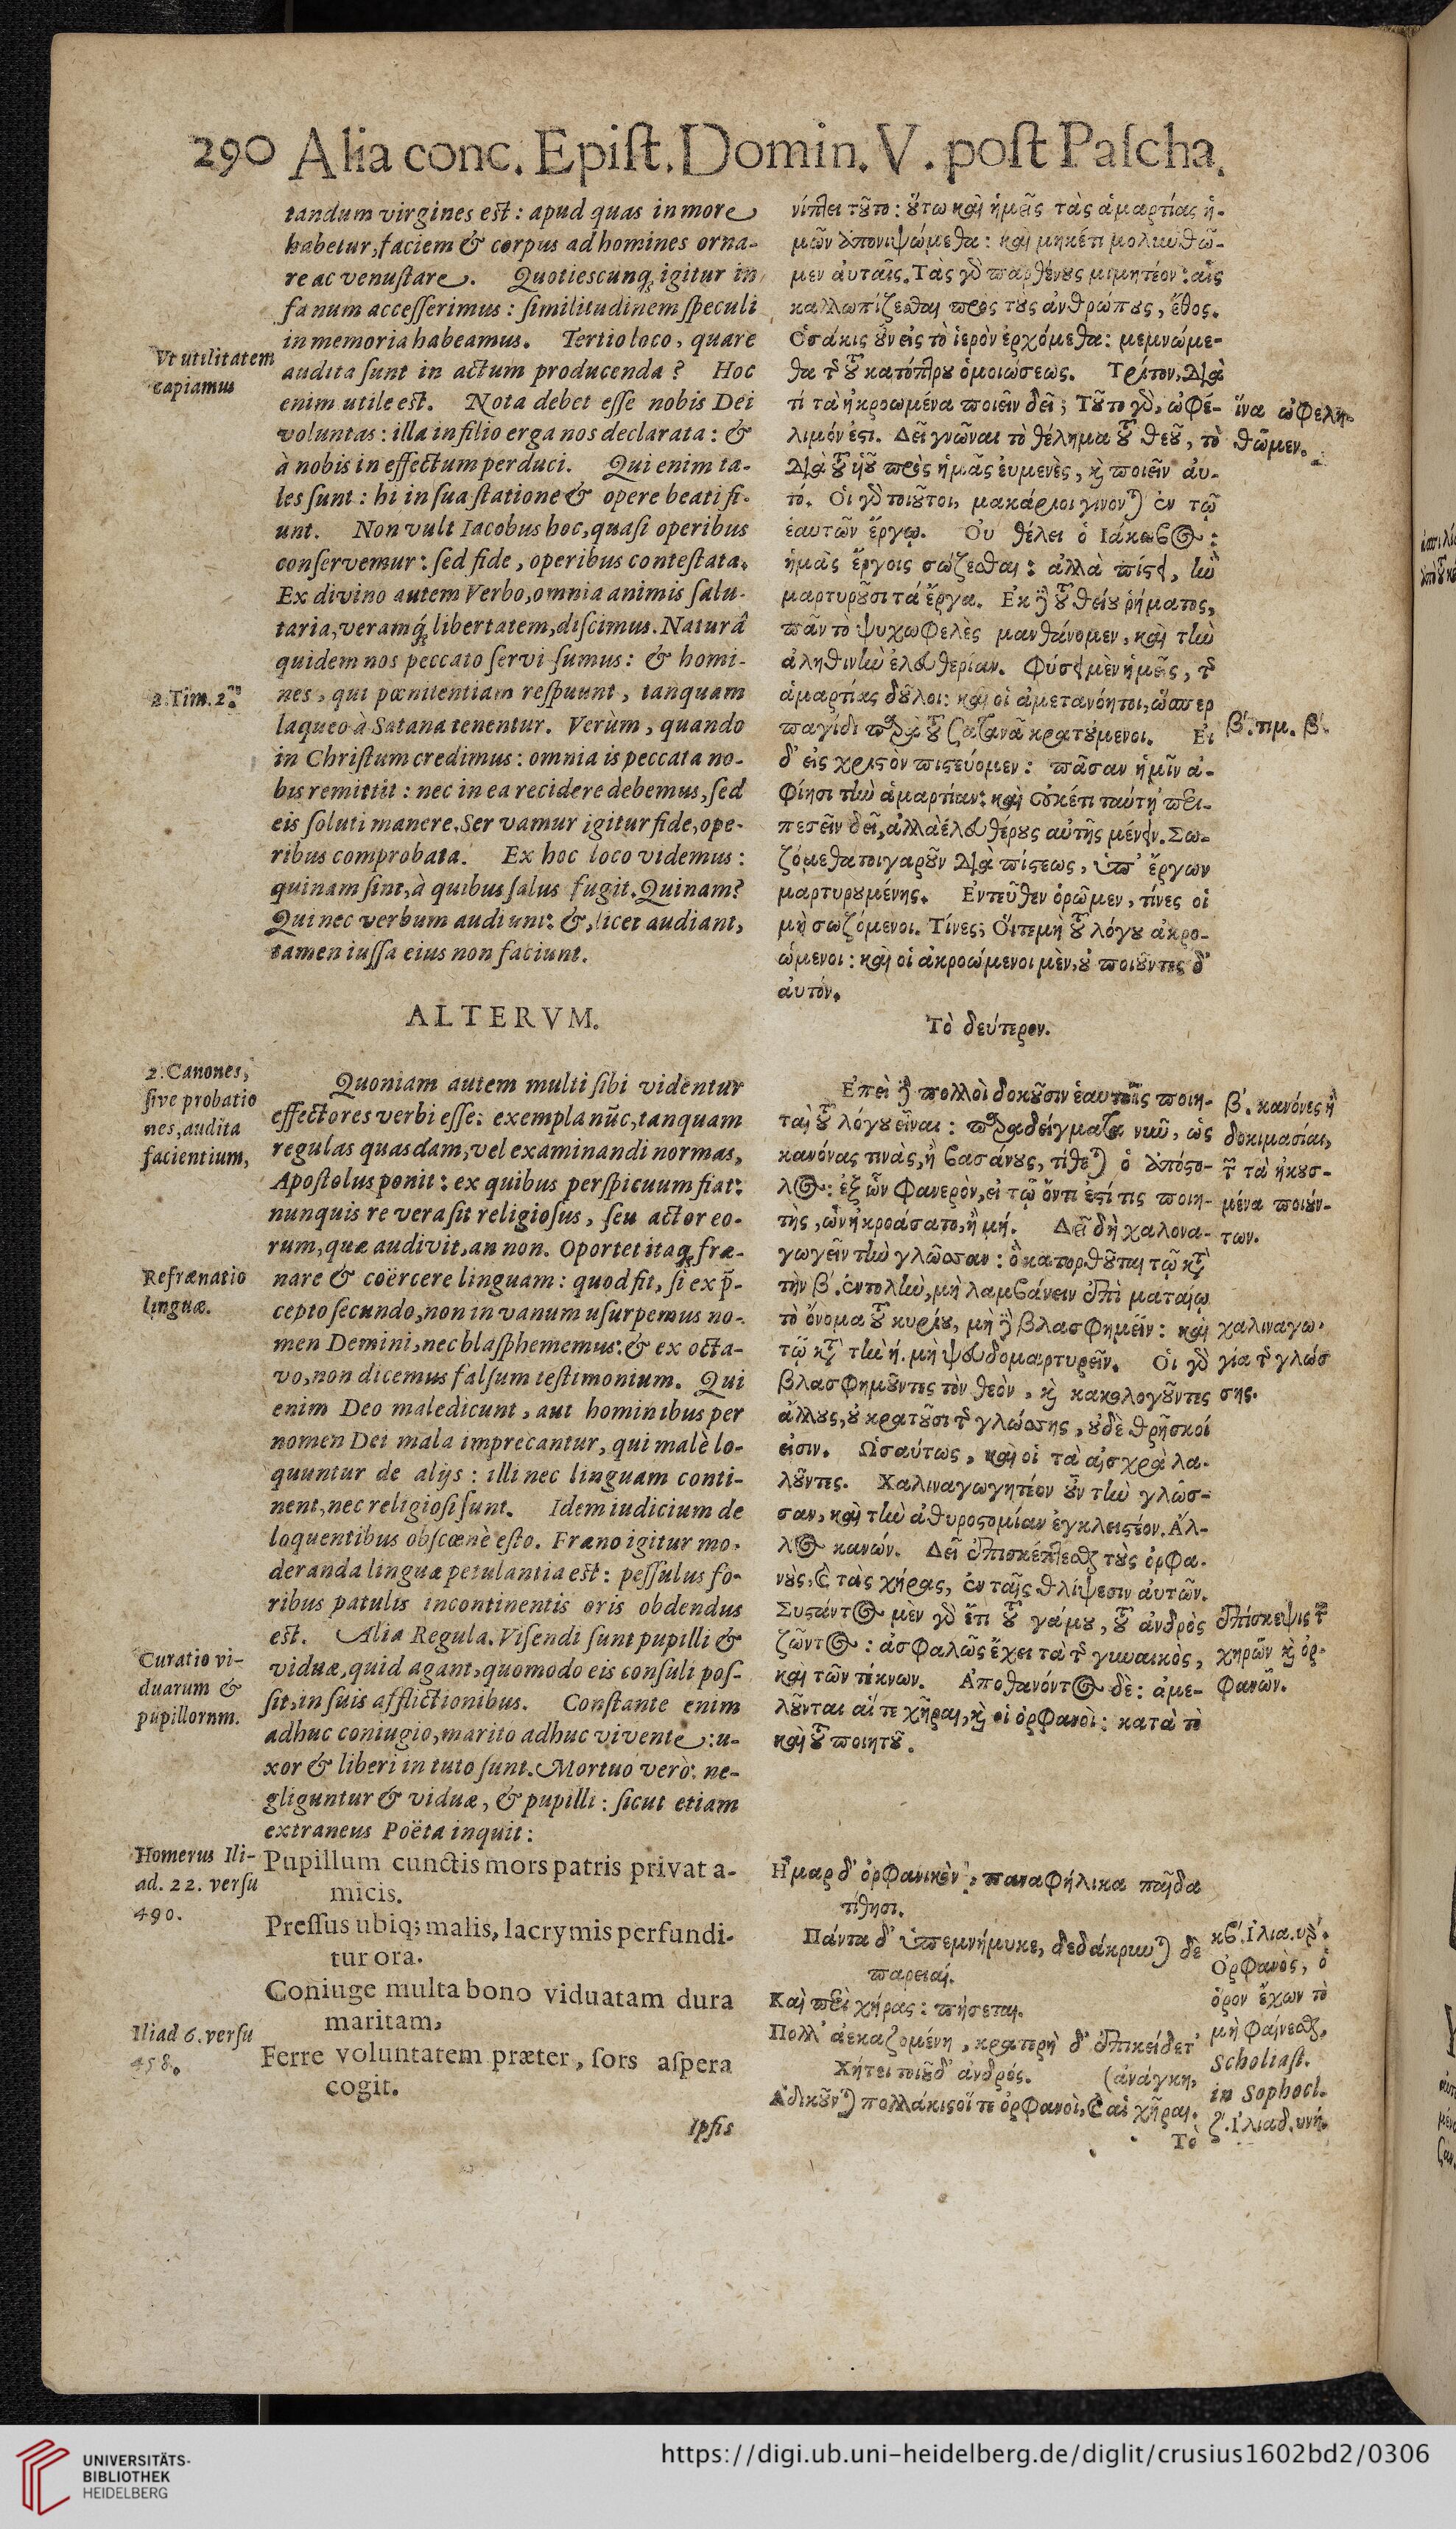 290 Alia conc. Epiſt. Domin. V. poſt Paſcha.
tandum virgines est: apud quas in more
habetur, faciem & corpus ad homines orna-
re ac venuſtare. Quotieſcunq; igitur in
fanum acceſſerimus: ſimilitudinem ſpeculi
in memoria habeamus. Tertio loco, quare
audita ſunt in actum producenda? Hoc
enim utile est. Nota debet eſſe nobis Dei
voluntas: illa in filio erga nos declarata: &
à nobis in effectum perduci. Qui enim ta-
les ſunt: hi in ſua ſtatione & opere beati fi-
unt. Non vult Iacobus hoc, quaſi operibus
conſervemur: ſed fide, operibus conteſtata.
Ex divino autem Verbo, omnia animis ſalu-
taria, veramq́; libertatem, diſcimus. Naturâ
quidem nos peccato ſervi ſumus: & homi-
nes, qui pœnitentiam reſpuunt, tanquam
laqueo à Satana tenentur. Verùm, quando
in Chriſtum credimus: omnia is peccata no-
bis remittit: nec in ea recidere debemus, ſed
eis ſoluti manere. Servamur igitur fide, ope-
ribus comprobata. Ex hoc loco videmus:
quinam ſint, à quibus ſalus fugit. Quinam?
Qui nec verbum audiunt: &, licet audiant,
tamen iuſſa eius non faciunt.
Vt utilitatem
capiamus
2. Tim. 2.
ALTERVM.
Quoniam autem multi ſibi videntur
effectores verbi eſſe: exempla nũc, tanquam
regulas quasdam, vel examinandi normas,
Apoſtolus ponit: ex quibus perſpicuum fiat:
nunquis re vera ſit religioſus, ſeu actor eo-
rum, quæ audivit, an non. Oportet itaq; fræ-
nare & coërcere linguam: quod fit, ſi ex p̃-
cepto ſecundo, non in vanum uſurpemus no-
men Domini, nec blaſphememus: & ex octa-
vo, non dicemus falſum teſtimonium. Qui
enim Deo maledicunt, aut hominibus per
nomen Dei mala imprecantur, qui malè lo-
quuntur de alijs: illi nec linguam conti-
nent, nec religioſi ſunt. Idem iudicium de
loquentibus obſcœnè eſto. Fræno igitur mo-
deranda linguæ petulantia est: peſſulus fo-
ribus patulis incontinentis oris obdendus
est. Alia Regula. Viſendi ſunt pupilli &
viduæ, quid agant, quomodo eis conſuli poſ-
ſit, in ſuis afflictionibus. Conſtante enim
adhuc coniugio, marito adhuc vivente: u-
xor & liberi in tuto ſunt. Mortuo verò: ne-
gliguntur & viduæ, & pupilli: ſicut etiam
extraneus Poëta inquit:
Pupillum cunctis mors patris privat a-
micis.
Preſſus ubiq; malis, lacrymis perfundi-
tur ora.
Coniuge multa bono viduatam dura
maritam,
Ferre voluntatem præter, ſors aſpera
cogit.
Ipſis
2. Canones,
ſive probatio
nes, audita
facientium,
Refrænatio
linguæ.
Curatio vi-
duarum &
pupillorum.
Homerus Ili-
ad. 22. verſu
490.
Iliad 6. verſu
458.
νίπτει τοῦτο: οὕτω καὶ ἡμεῖς τὰς ἁμαρτίας ἡ-
μῶν ἀπονιψώμεθα: καὶ μηκέτι μολυνθῶ-
μεν αὐταῖς. Τὰς γὸ παρθένους μιμητέον: αἷς
καλλωπίζεσθαι πρὸς τοὺς ἀνθρώπους, ἔθος.
Ὁσάκις οὖν εἰς τὸ ἱερὸν ἐρχόμεθα: μεμνώμε-
θα τῆς τοῦ κατόπτρου ὁμοιώσεως. Τρίτον, διὰ
τί τὰ ἠκροωμένα ποιεῖν δεῖ; Τοῦτο γὸ, ὠφέ-
λιμόν ἐστι. Δεῖ γνῶναι τὸ θέλημα τοῦ θεοῦ, τὸ
διὰ τοῦ υἱοῦ πρὸς ἡμᾶς εὐμενὲς, καὶ ποιεῖν αὐ-
τό. Οἱ γὸ τοιοῦτοι, μακάριοι γίνονται ἐν τῷ
ἑαυτῶν ἔργῳ. Οὐ θέλει ὁ Ιάκωβος:
ἡμᾶς ἔργοις σώζεσθαι: ἀλλὰ πίστει, ἣν
μαρτυροῦσι τά ἔργα. Ἐκ δὲ τοῦ θείου ῥήματος,
πᾶν τὸ ψυχωφελὲς μανθάνομεν, καὶ τὴν
ἀληθινὴν ἐλευθερίαν. Φύσει μὲν ἡμεῖς, τῆς
ἁμαρτίας δοῦλοι: καὶ οἱ ἀμετανόητοι, ὥσπερ
παγίδι παρὰ τοῦ Σατανᾶ κρατούμενοι. Εἰ
δ' εἰς χριστὸν πιστεύομεν: πᾶσαν ἡμῖν ἀ-
φίησι τὴν ἁμαρτίαν: καὶ οὐκέτι ταύτῃ περι-
πεσεῖν δεῖ, ἀλλὰ ἐλευθέρους αὐτῆς μένειν. Σω-
ζόμεθα τοιγαροῦν διὰ πίστεως, ὑπ' ἔργων
μαρτυρουμένης. Ἐντεῦθεν ὁρῶμεν, τίνες οἱ
μὴ σωζόμενοι. Τίνες; Οἵτε μὴ τοῦ λόγου ἀκρο-
ώμενοι: καὶ οἱ ἀκροώμενοι μὲν, οὐ ποιοῦντες δ'
αὐτόν.
ἵνα ὠφελη-
θῶμεν.
β'. τιμ. β'.
Τὸ δεύτερον.
Ἐπεὶ δὲ πολλοὶ δοκοῦσιν ἑαυτοῖς ποιη-
ταὶ τοῦ λόγου εἶναι: παραδείγματα νῦν, ὡς
κανόνας τινὰς, ἢ βασάνους, τίθεται ὁ ἀπόστο-
λος: ἐξ ὧν φανερὸν, εἰ τῷ ὄντι ἐστί τις ποιη-
τὴς, ὧν ἠκροάσατο, ἢ μή. Δεῖ δὴ χαλινα-
γωγεῖν τὴν γλῶσσαν: ὃ κατορθοῦται τῷ κατὰ
τὴν β'. ἐντολὴν, μὴ λαμβάνειν ἐπὶ ματαίῳ
τὸ ὄνομα τοῦ κυρίου, μὴ δὲ βλασφημεῖν: καὶ
τῷ κατὰ τὴν ή. μὴ ψευδομαρτυρεῖν. Οἱ γὸ
βλασφημοῦντες τὸν θεὸν, καὶ κακολογοῦντες
ἄλλους, οὐ κρατοῦσι τῆς γλώσσης, οὐδὲ θρῆσκοί
εἰσιν. Ὡσαύτως, καὶ οἱ τὰ αἰσχρὰ λα-
λοῦντες. Χαλιναγωγητέον οὖν τὴν γλῶσ-
σαν, καὶ τὴν ἀθυροστομίαν ἐγκλειστέον. Ἄλ-
λος κανών. Δεῖ ἐπισκέπτεσθαι τοὺς ὀρφα-
νοὺς, καὶ τὰς χήρας, ἐν ταῖς θλίψεσιν αὐτῶν.
Συστάντος μὲν γὸ ἔτι τοῦ γάμου, τοῦ ἀνδρὸς
ζῶντος: ἀσφαλῶς ἔχει τὰ τῆς γυναικὸς,
καὶ τῶν τέκνων. Ἀποθανόντος δὲ: ἀμε-
λοῦνται αἵ τε χῆραι, καὶ οἱ ὀρφανοὶ: κατὰ τὸ
καὶ τοῦ ποιητοῦ.
Ἦμαρ δ' ὀρφανικὸν, παναφήλικα παῖδα
τίθησι.
Πάντα δ' ὑπεμνήμυκε, δεδάκρυνται δὲ
παρειαί.
Καὶ περὶ χήρας: πήσεται.
Πολλ' ἀεκαζομένη, κρατερὴ δ' ἐπικείσετ'
Χήτει τοιοῦδ' ἀνδρός. (ἀνάγκη,
Ἀδικοῦνται πολλάκις οἵ τε ὀρφανοὶ, καὶ αἱ χῆραι.
Τὸ
β'. κανόνες ἢ
δοκιμασίαι,
τῶν τὰ ἠκουσ-
μένα ποιούν-
των.
χαλιναγω-
γία τῆς γλώσ
σης.
ἐπίσκεψις τῶν
χηρῶν καὶ ὀρ-
φανῶν.
κβ'. Ἰλια. υϟ'.
Ὀρφανὸς, ὁ
ὅρον ἔχων τὸ
μὴ φαίνεσθαι.
Scholiaſt.
in Sophocl.
ζ'. Ἰλιαδ. υνή.
UNIVERSITÄTS-
BIBLIOTHEK
HEIDELBERG
https://digi.ub.uni-heidelberg.de/diglit/crusius1602bd2/0306